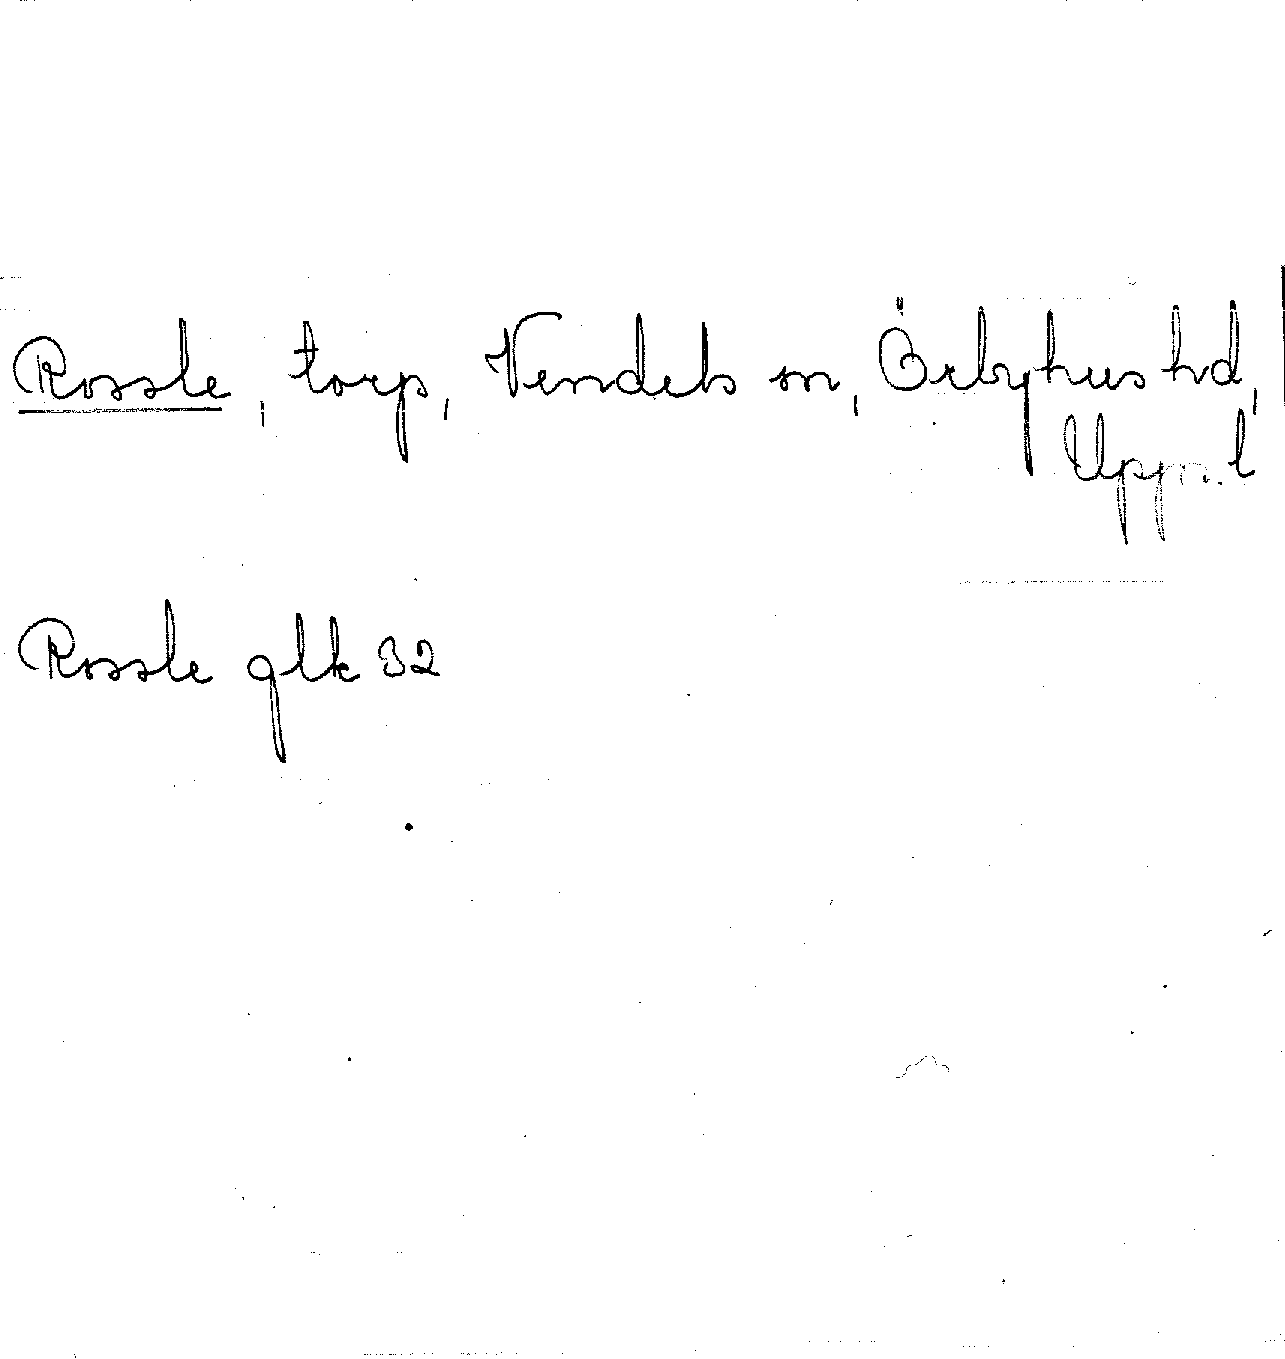 Rossle, torp, Vendels sn, Örbyhus hd,
Upps. l
Rossle glk 32